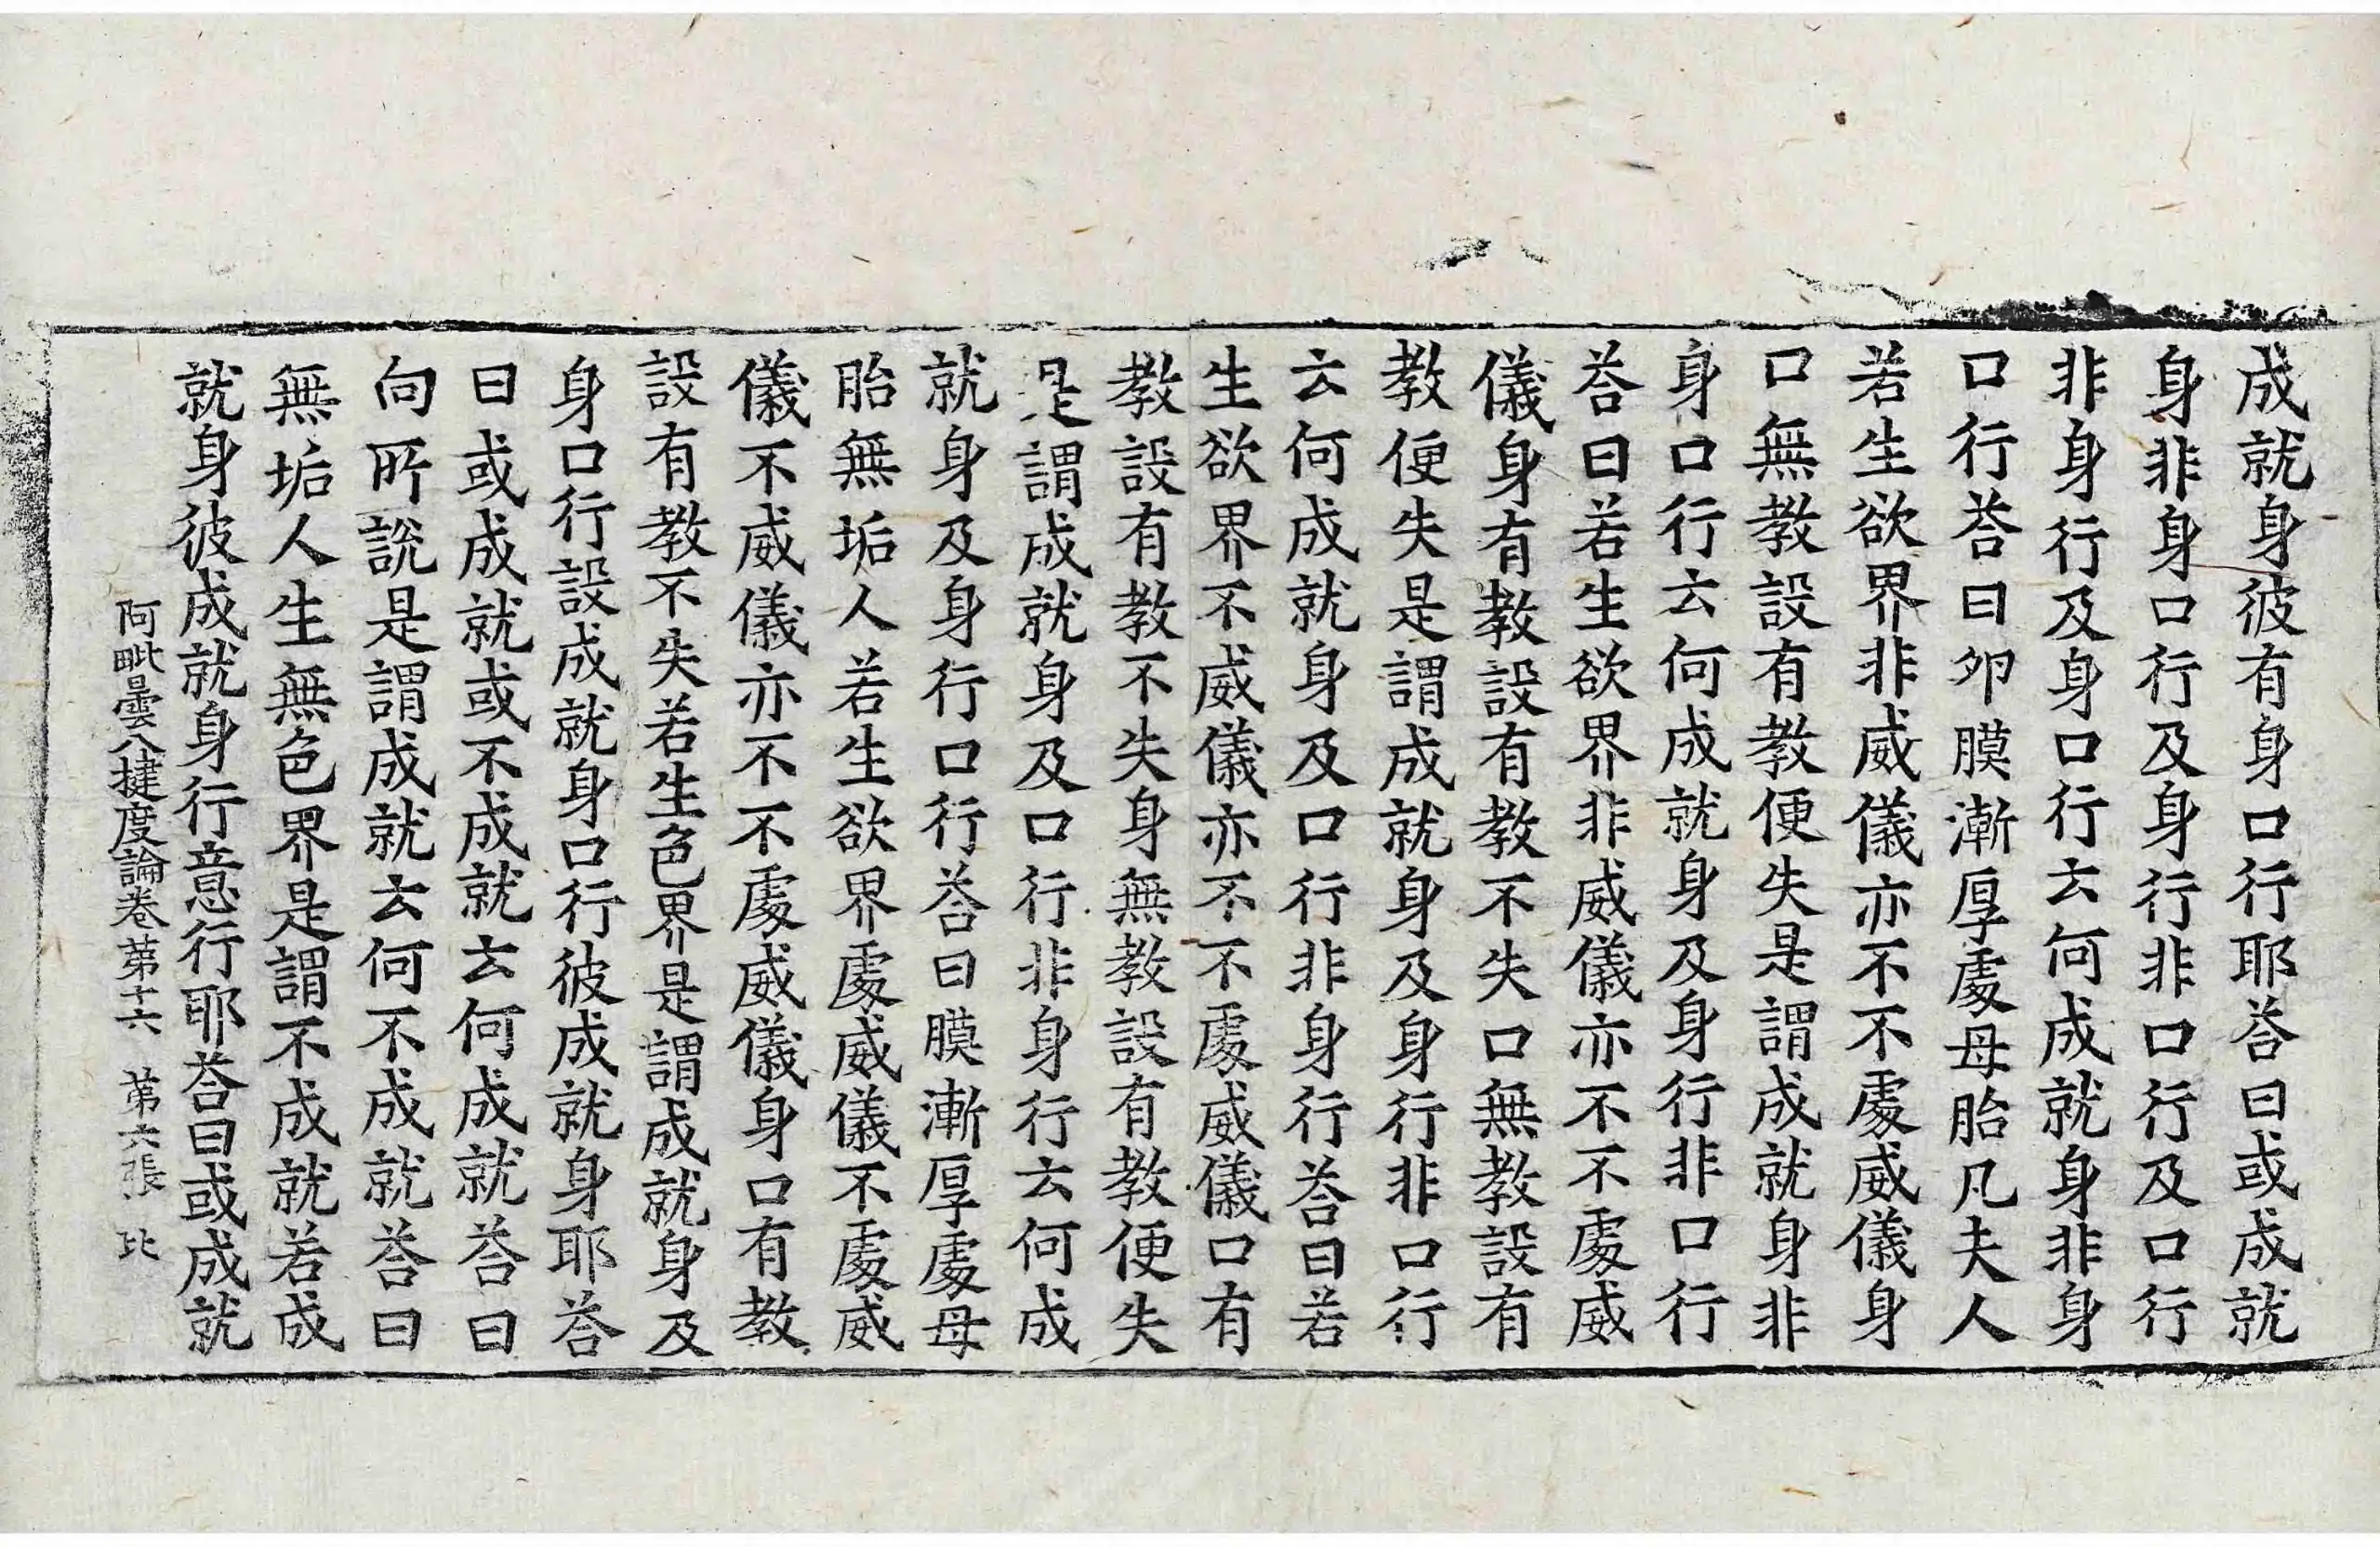 成就身彼有身口行耶荅曰或成就
身非身口行及身行非口行及口行
非身行及身口行云何成就身非身
口行荅曰夘膜漸厚處母胎凡夫人
若生欲界非威儀亦不不處威儀身
口無教設有教便失是謂成就身非
身口行云何成就身及身行非口行
荅曰若生欲界非威儀亦不不處威
儀身有教設有教不失口無教設有
教便失是謂成就身及身行非口行
云何成就身及口行非身行荅曰若
生欲界不威儀亦不不處威儀口有
教設有教不失身無教設有教便失
是謂成就身及口行非身行云何成
就身及身行口行荅曰膜漸厚處母
胎無垢人若生欲界處威儀不處威
儀不威儀亦不不處威儀身口有教
設有教不失若生色界是謂成就身及
身口行設成就身口行彼成就身耶荅
曰或成就或不成就云何成就荅曰
向所說是謂成就云何不成就荅曰
無垢人生無色界是謂不成就若成
就身彼成就身行意行耶荅曰或成就
阿毗曇八揵度論卷苐十六 苐六張 比